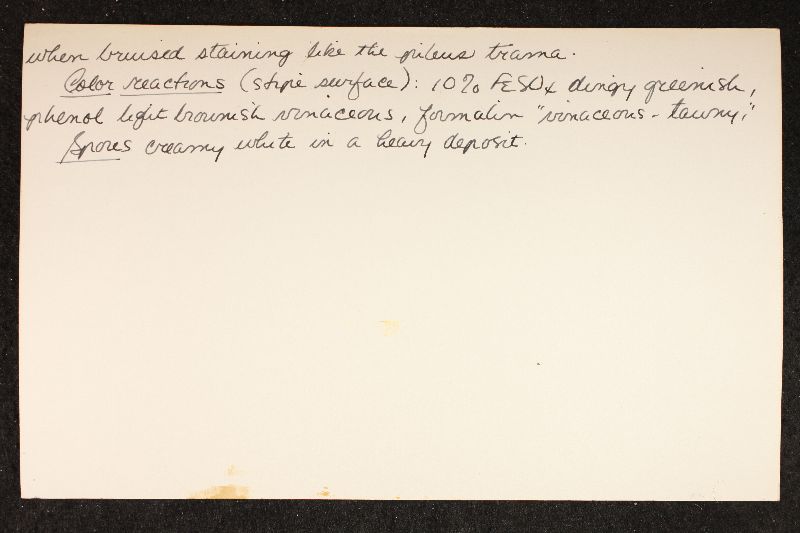 when bruised staining like the pileus trama.
Color reactions (stipe surface): 10% FESO4 dingy greenish,
phenol light brownish vinaceous, formalin "vinaceous-tawny."
Spores creamy white in a heavy deposit.